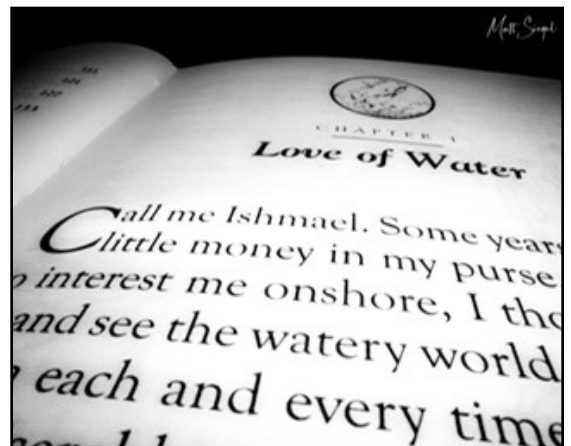 Matt Siegel
CHAPTER 1
Love of Water
Call me Ishmael. Some years
little money in my purse
interest me onshore, I tho
and see the watery world
each and every time